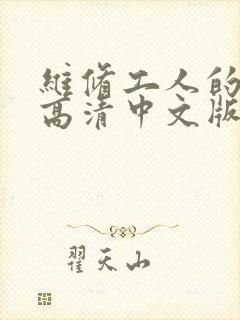 維修工人的
高清中文版
翟天山